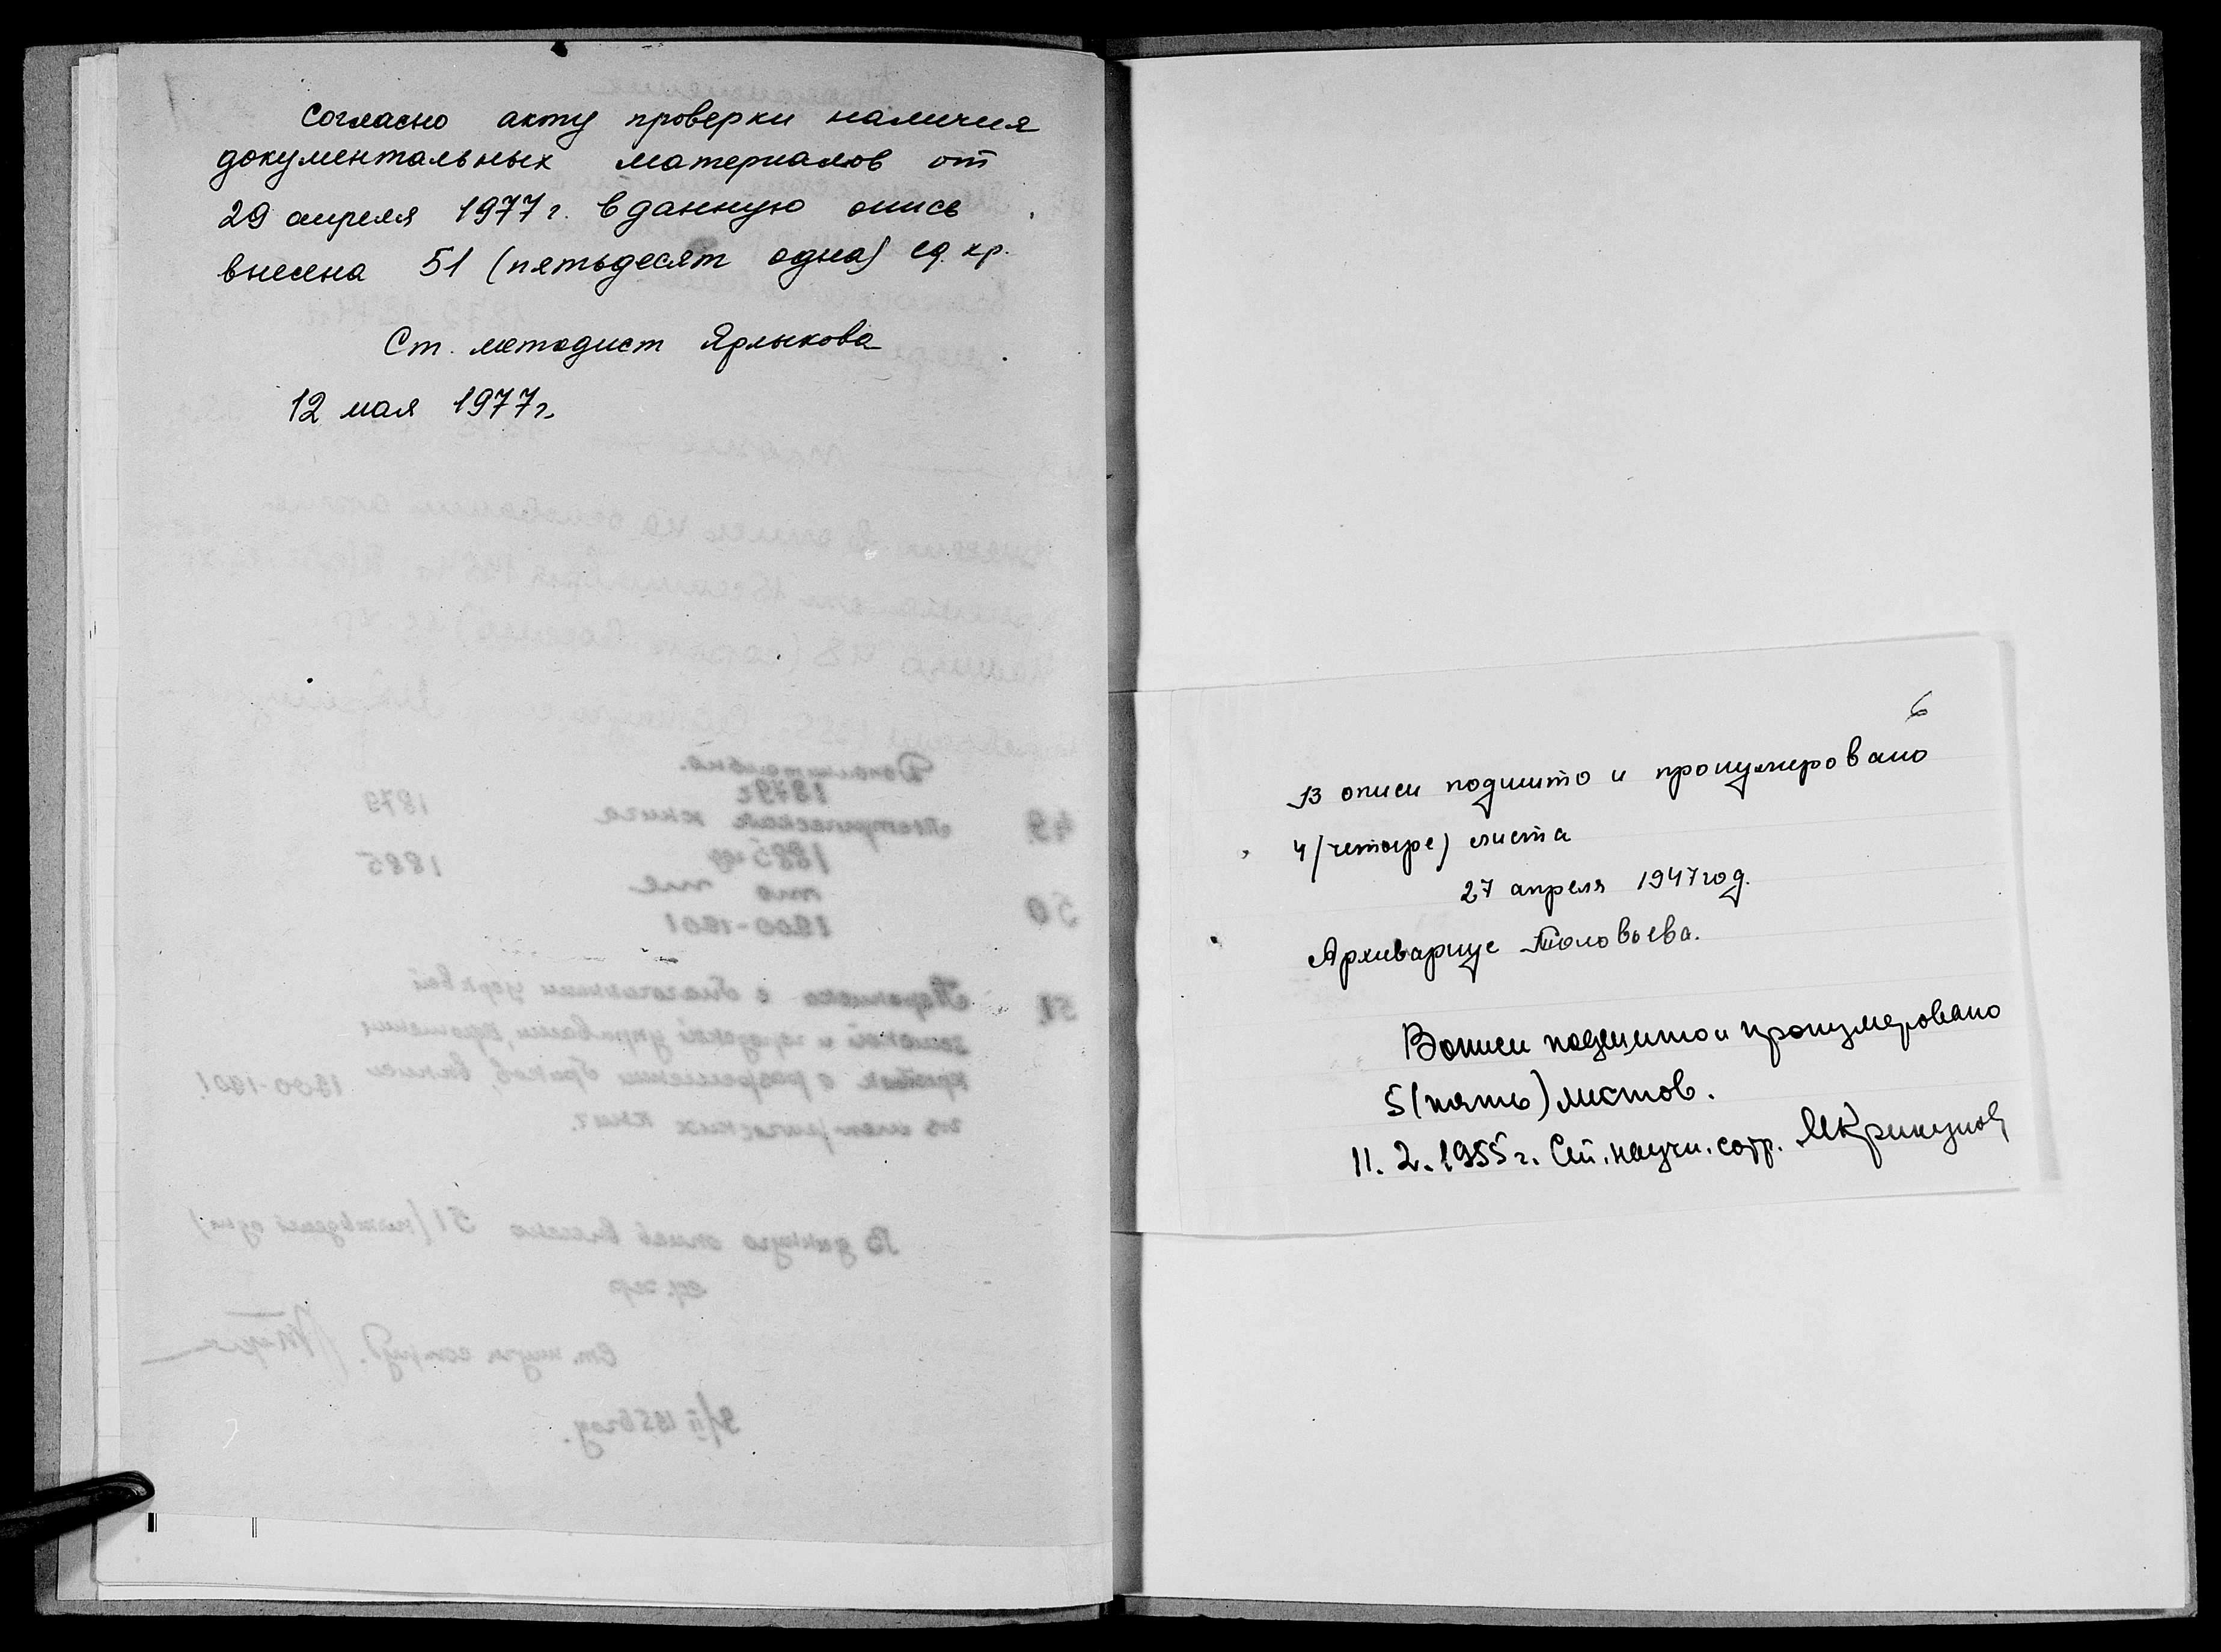 Согласно акту проверки наличия
документальных материалов от
29 апреля 1977 г. в данную опись
внесена 51 (пятьдесят одна) ед. хр.
Ст. методист Ярлыкова
12 мая 1977 г.
6
В описи подшито и пронумеровано
4 (четыре) листа
27 апреля 1947 год.
Архивариус
В описи подшито и пронумеровано
5 (пять) листов.
11. 2. 1955 г. Ст. научн. сотр.